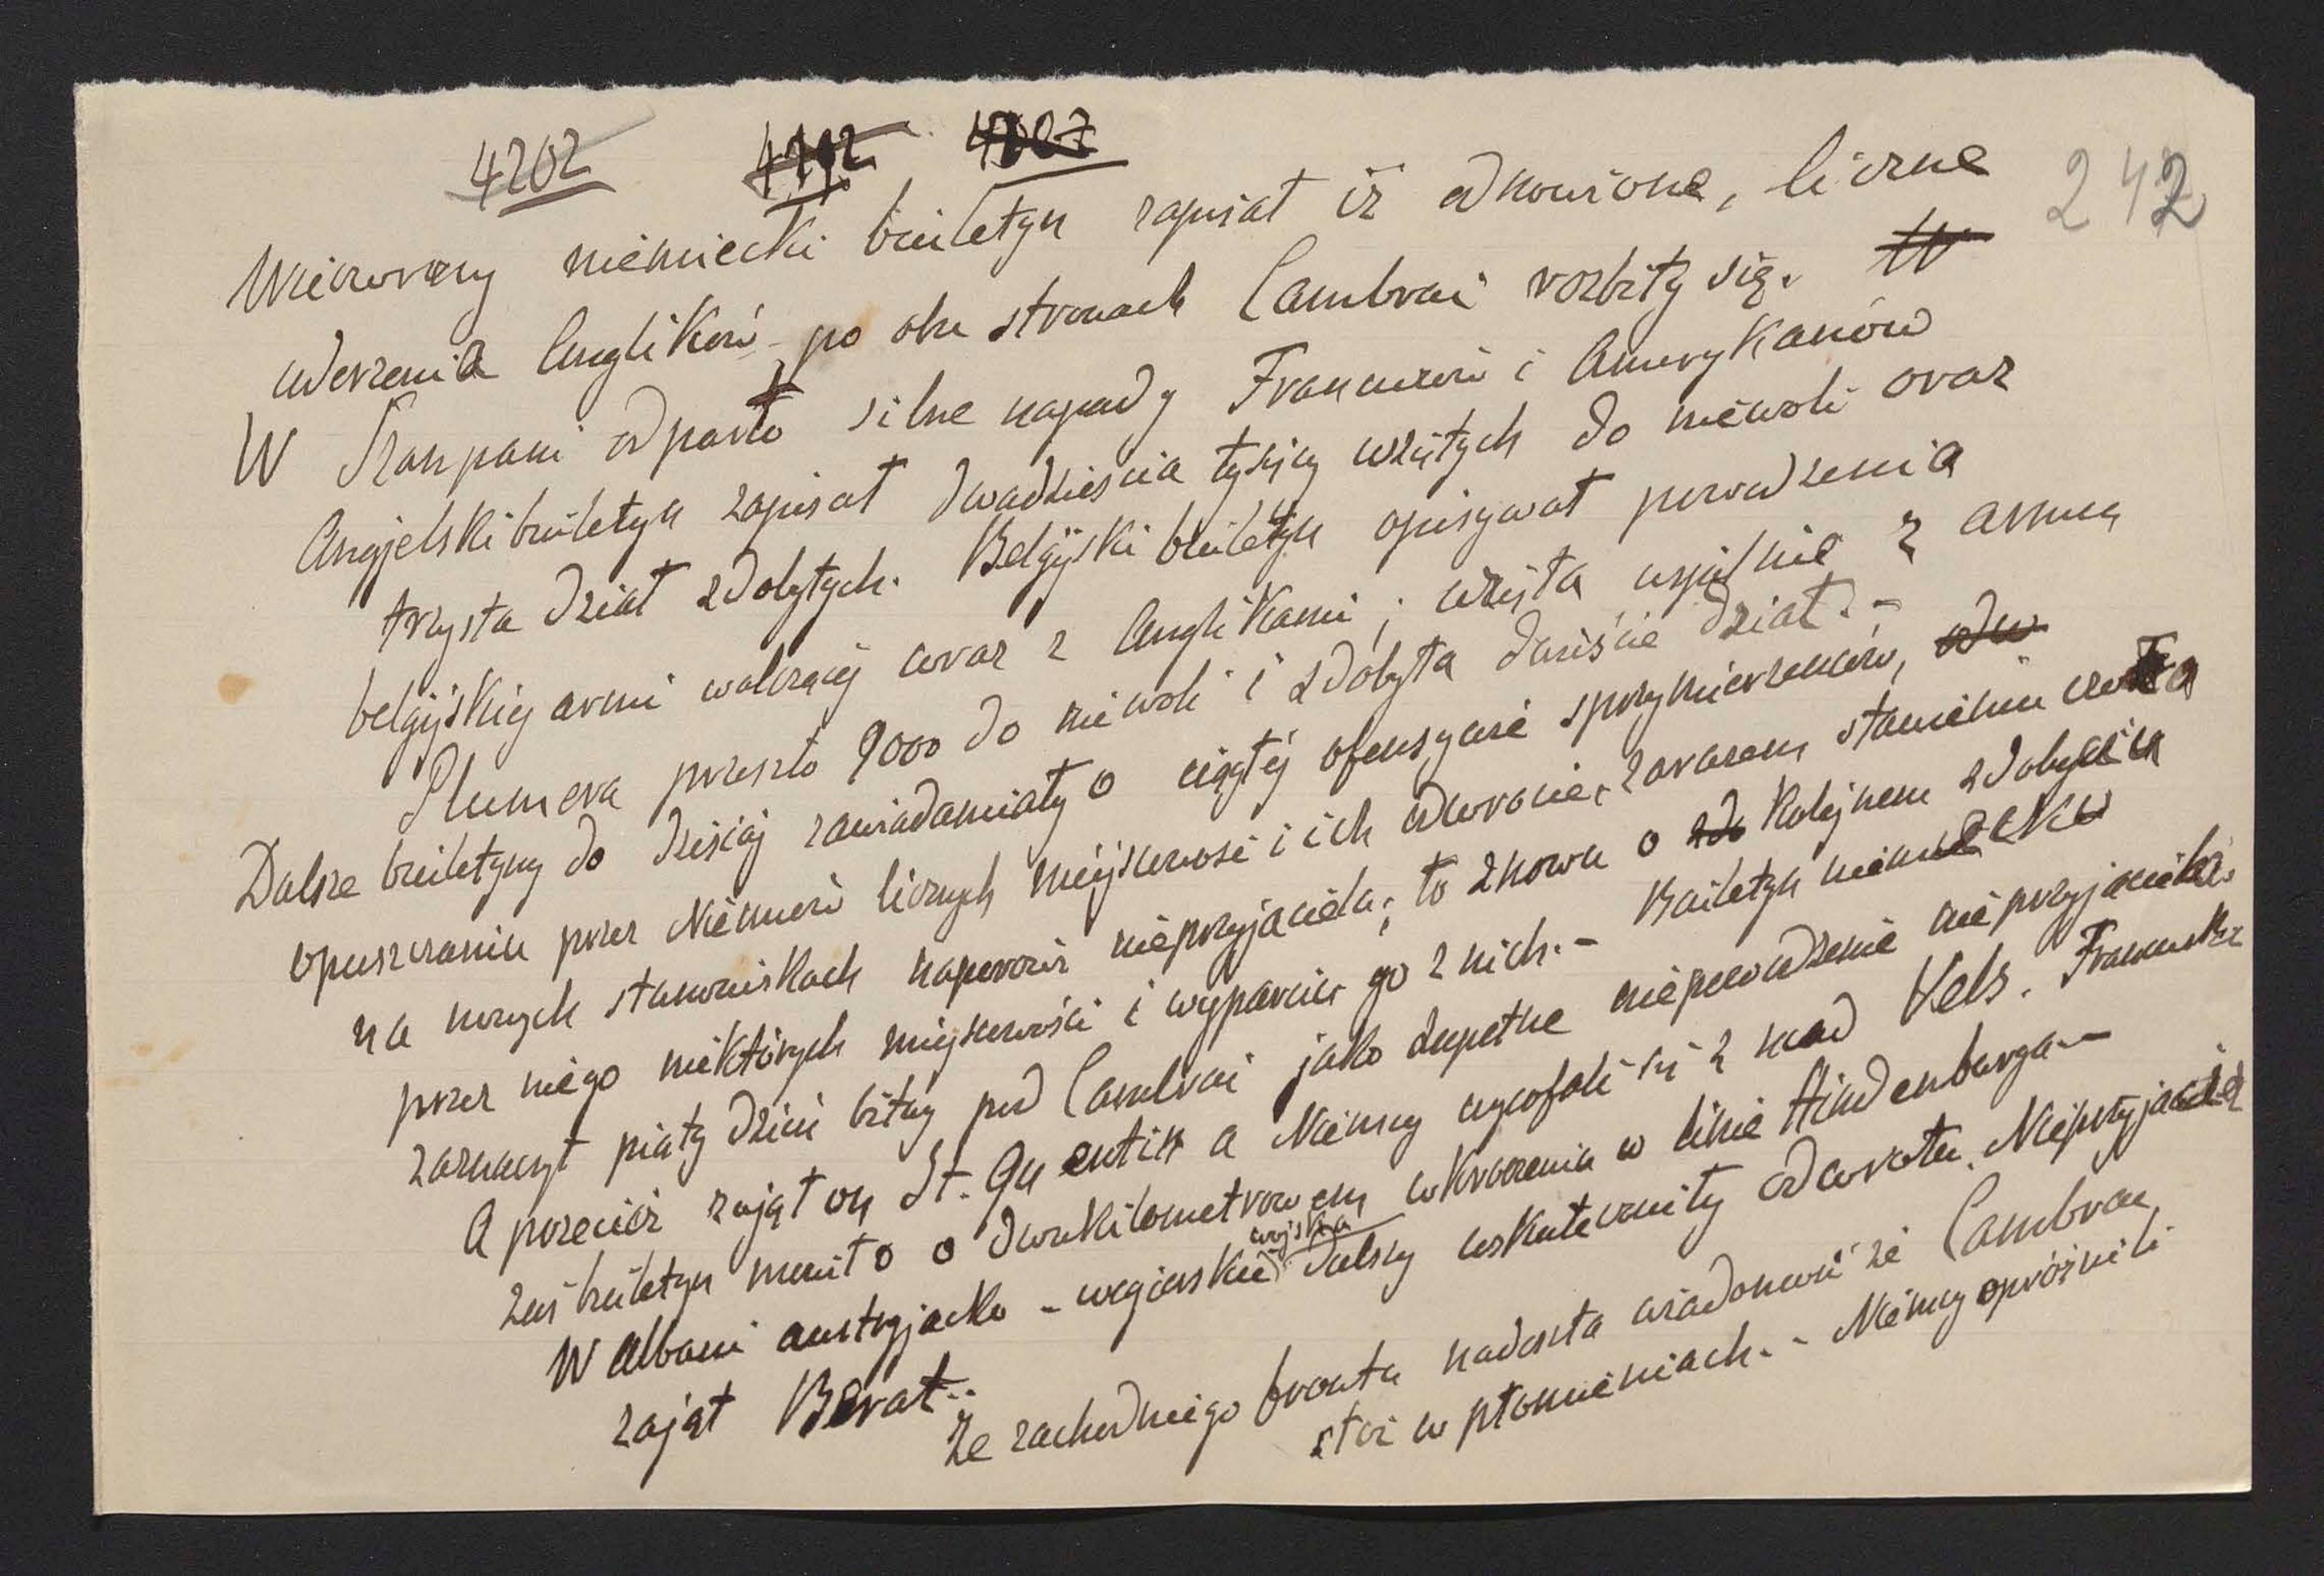 4202 4192 4207
242
Wieczorny niemiecki biuletyn zapisał iż odnowione, liczne
uderzenia Anglików po obu stronach Cambrai rozbiły się. W
W Szanpani odparto silne napady Francuzów i Amerykanów
Angjelski biuletyn zapisał dwadzieścia tysięcy wziętych do niewoli oraz
trzysta dział zdobytych. Belgijski biuletyn opisywał powodzenia
belgijskiej armi walczącej wraz z Anglikami; wzięta wspólnie z armią
Plumera przeszło 9000 do niewoli i zdobyła dwieście dział. -
Dalsze biuletyny do dzisiaj zawiadamiały o ciągłej ofensywie sprzymierzeńców, odw
opuszczaniu przez Niemców licznych miejscowość i ich odwrocie, zarazem stawieniu czoła
na nowych stanowiskach naporowi nieprzyjaciela; to znowu o zdo kolejnem zdobyciu
przez niego niektórych miejscowości i wyparciu go z nich. - Biuletyn niemiecki
zaznaczył piąty dzień bitwy pod Cambrai jako zupełne niepowodzenie nieprzyjaciela.
A przecież zajął on St. Quentin a Niemcy wycofali się z nad Vels. Francuski
zaś biuletyn mówił o dwukilometrowem wkroczeniu w linie Hindenburga -
W Albani austryjacko - węgierskie wojska dalszy uskuteczniły odwrotu. Nieprzyjaciel
zajął Berat. -
Ze zachodniego frontu nadeszła wiadomość że Cambrai
stoi w płomieniach. - Niemcy opróżnili